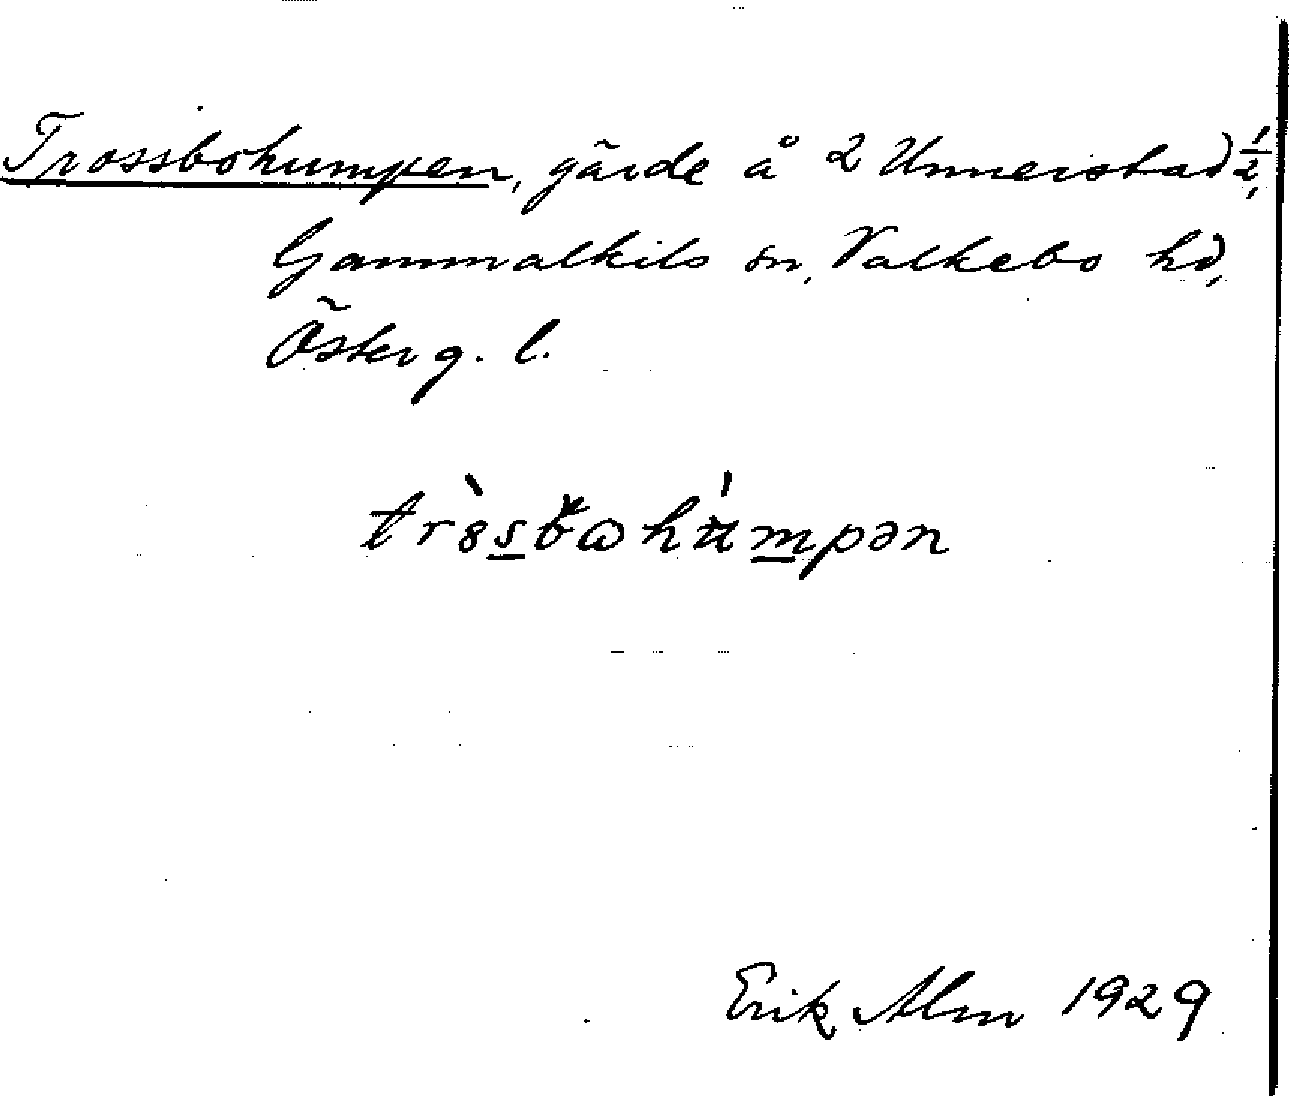 Trossbohumpen, gärde å 2 Unnerstad 1/2,
Gammalkils sn, Valkebo hd,
Österg. l.
Erik Alm 1929